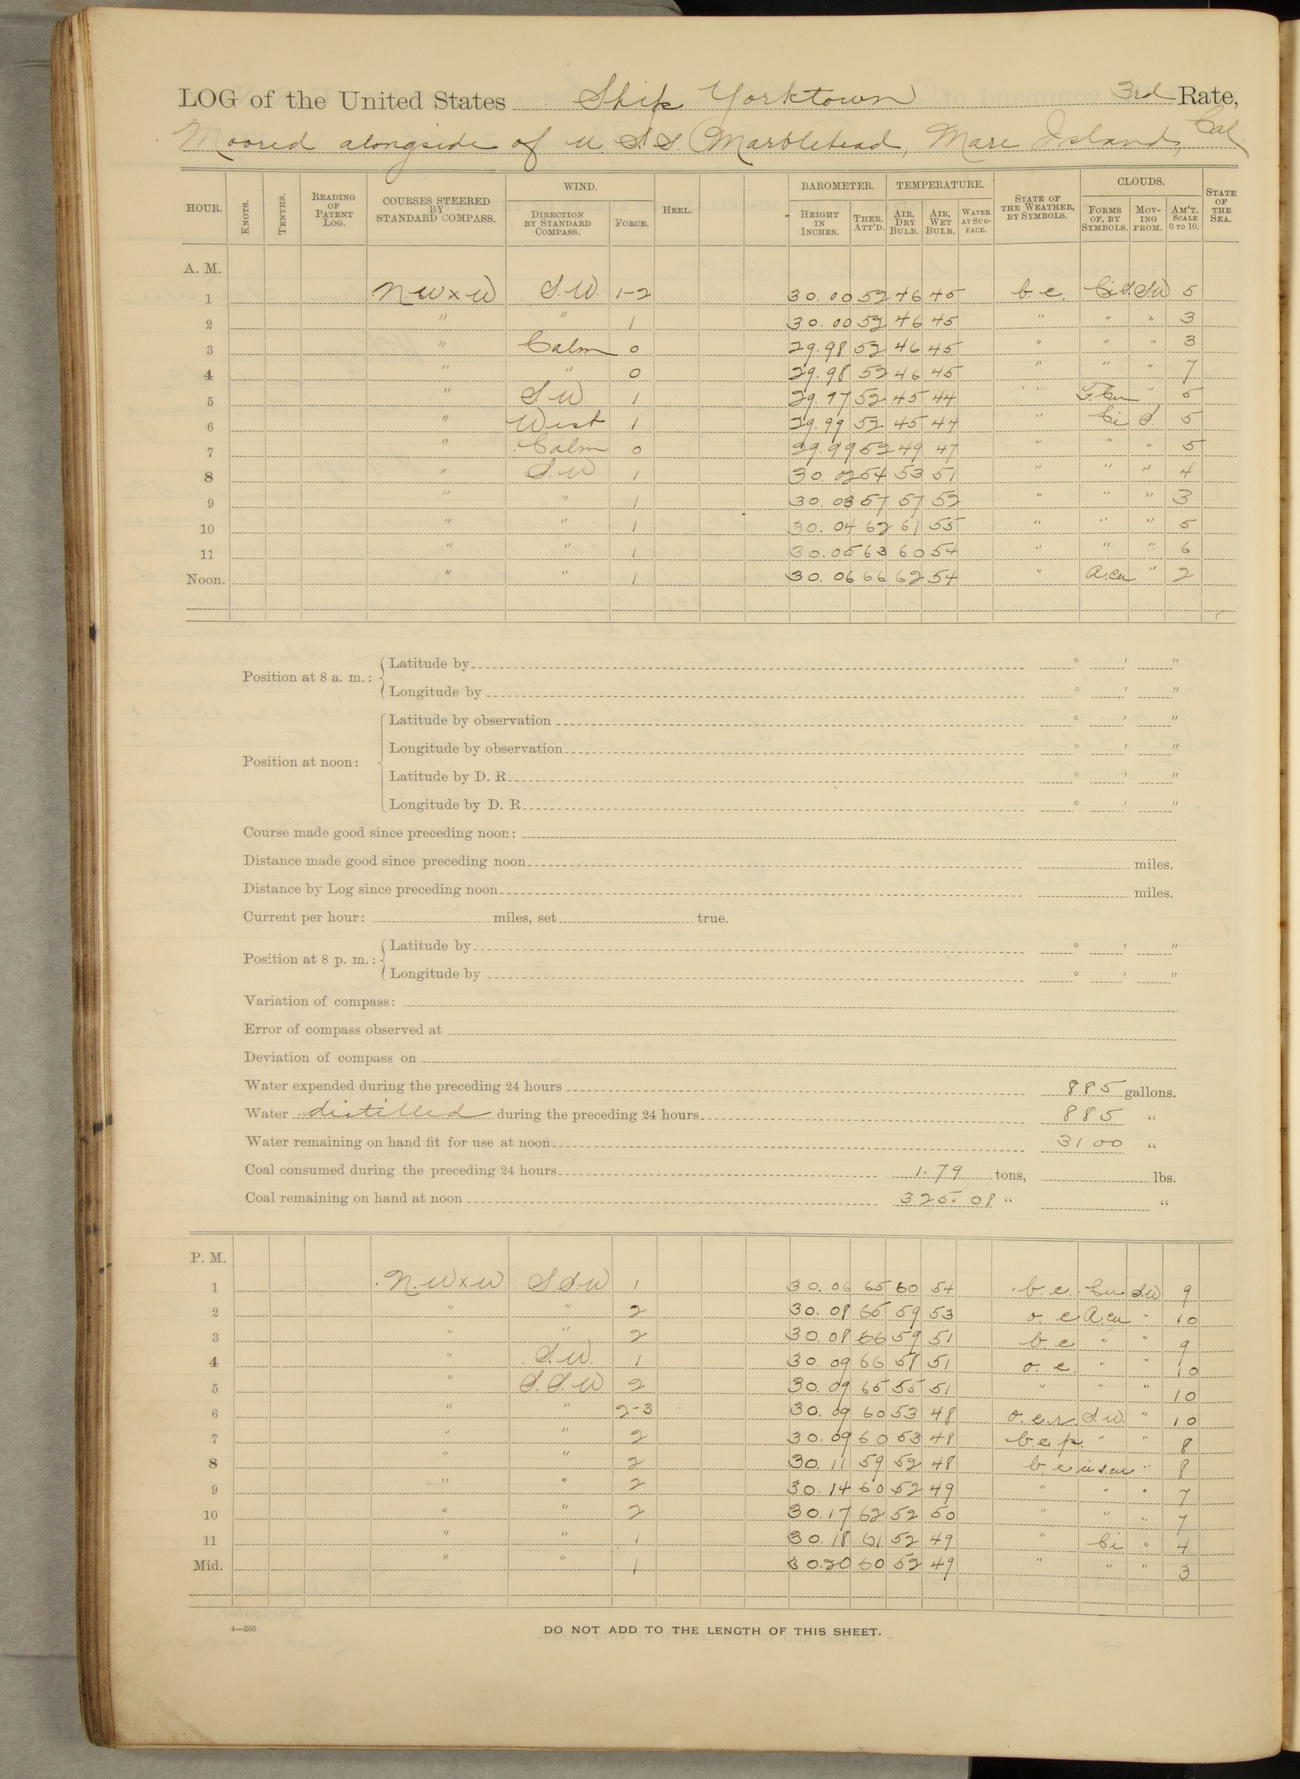 LOG of the United States Ship Yorktown 3rd Rate,
Moored alongside of U.S.S. Marblehead, Mare Island, Cal
HOUR. KNOTS. TENTHS. READING OF PATENT LOG. COURSES STEERED BY STANDARD COMPASS. WIND. DIRECTION BY STANDARD COMPASS. FORCE. HEEL. BAROMETER. HEIGHT IN INCHES. THER. ATT'D. TEMPERATURE. AIR, DRY BULB. AIR, WET BULB. WATER AT SURFACE. STATE OF THE WEATHER, BY SYMBOLS. CLOUDS. FORMS OF, BY SYMBOLS. MOVING FROM. AM'T. SCALE 0 TO 10. STATE OF THE SEA.
A. M.
1 N.W x W S.W. 1-2 30.00 52 46 45 b.c. Ci.S. SW 5
2 " " 1 30.00 52 46 45 " " " 3
3 " Calm 0 29.98 52 46 45 " " " 3
4 " " 0 29.98 52 46 45 " " " 7
5 " S W 1 29.97 52 45 44 " " 5
6 " West 1 29.99 52 45 44 " Ci S. 5
7 " Calm 0 29.99 52 49 47 " " " 5
8 " S.W 1 30.02 54 53 51 " " " 4
9 " " 1 30.03 57 57 52 " " " 3
10 " " 1 30.04 62 61 55 " " " 5
11 " " 1 30.05 63 60 54 " " " 6
Noon. " " 1 30.06 66 62 54 " A.cu " 2
Position at 8 a. m.:
Latitude by ° ' "
Longitude by ° ' "
Position at noon:
Latitude by observation ° ' "
Longitude by observation ° ' "
Latitude by D. R. ° ' "
Longitude by D. R. ° ' "
Course made good since preceding noon:
Distance made good since preceding noon miles.
Distance by Log since preceding noon miles.
Current per hour: miles, set true.
Position at 8 p. m.:
Latitude by ° ' "
Longitude by ° ' "
Variation of compass:
Error of compass observed at
Deviation of compass on
Water expended during the preceding 24 hours 885 gallons.
Water distilled during the preceding 24 hours 885 "
Water remaining on hand fit for use at noon 3100 "
Coal consumed during the preceding 24 hours 1.79 tons, lbs.
Coal remaining on hand at noon 325.08 " "
P. M.
1 N.W x W S S.W 1 30.06 65 60 54 b.c. Cu SW 9
2 " " 2 30.08 65 59 53 o.c A.cu " 10
3 " " 2 30.08 66 59 51 b.c " " 9
4 " S.W. 1 30.09 66 58 51 o.c. " " 10
5 " S.S.W 2 30.09 65 55 51 " " " 10
6 " " 2-3 30.09 60 53 48 o.c.r S.W. " 10
7 " " 2 30.09 60 53 48 b.c.p. " " 8
8 " " 2 30.11 59 52 48 b.c " 8
9 " " 2 30.14 60 52 49 " " " 7
10 " " 2 30.17 62 52 50 " " " 7
11 " " 1 30.18 61 52 49 " Ci " 4
Mid. " " 1 30.20 60 52 49 " " " 3
4—265
DO NOT ADD TO THE LENGTH OF THIS SHEET.